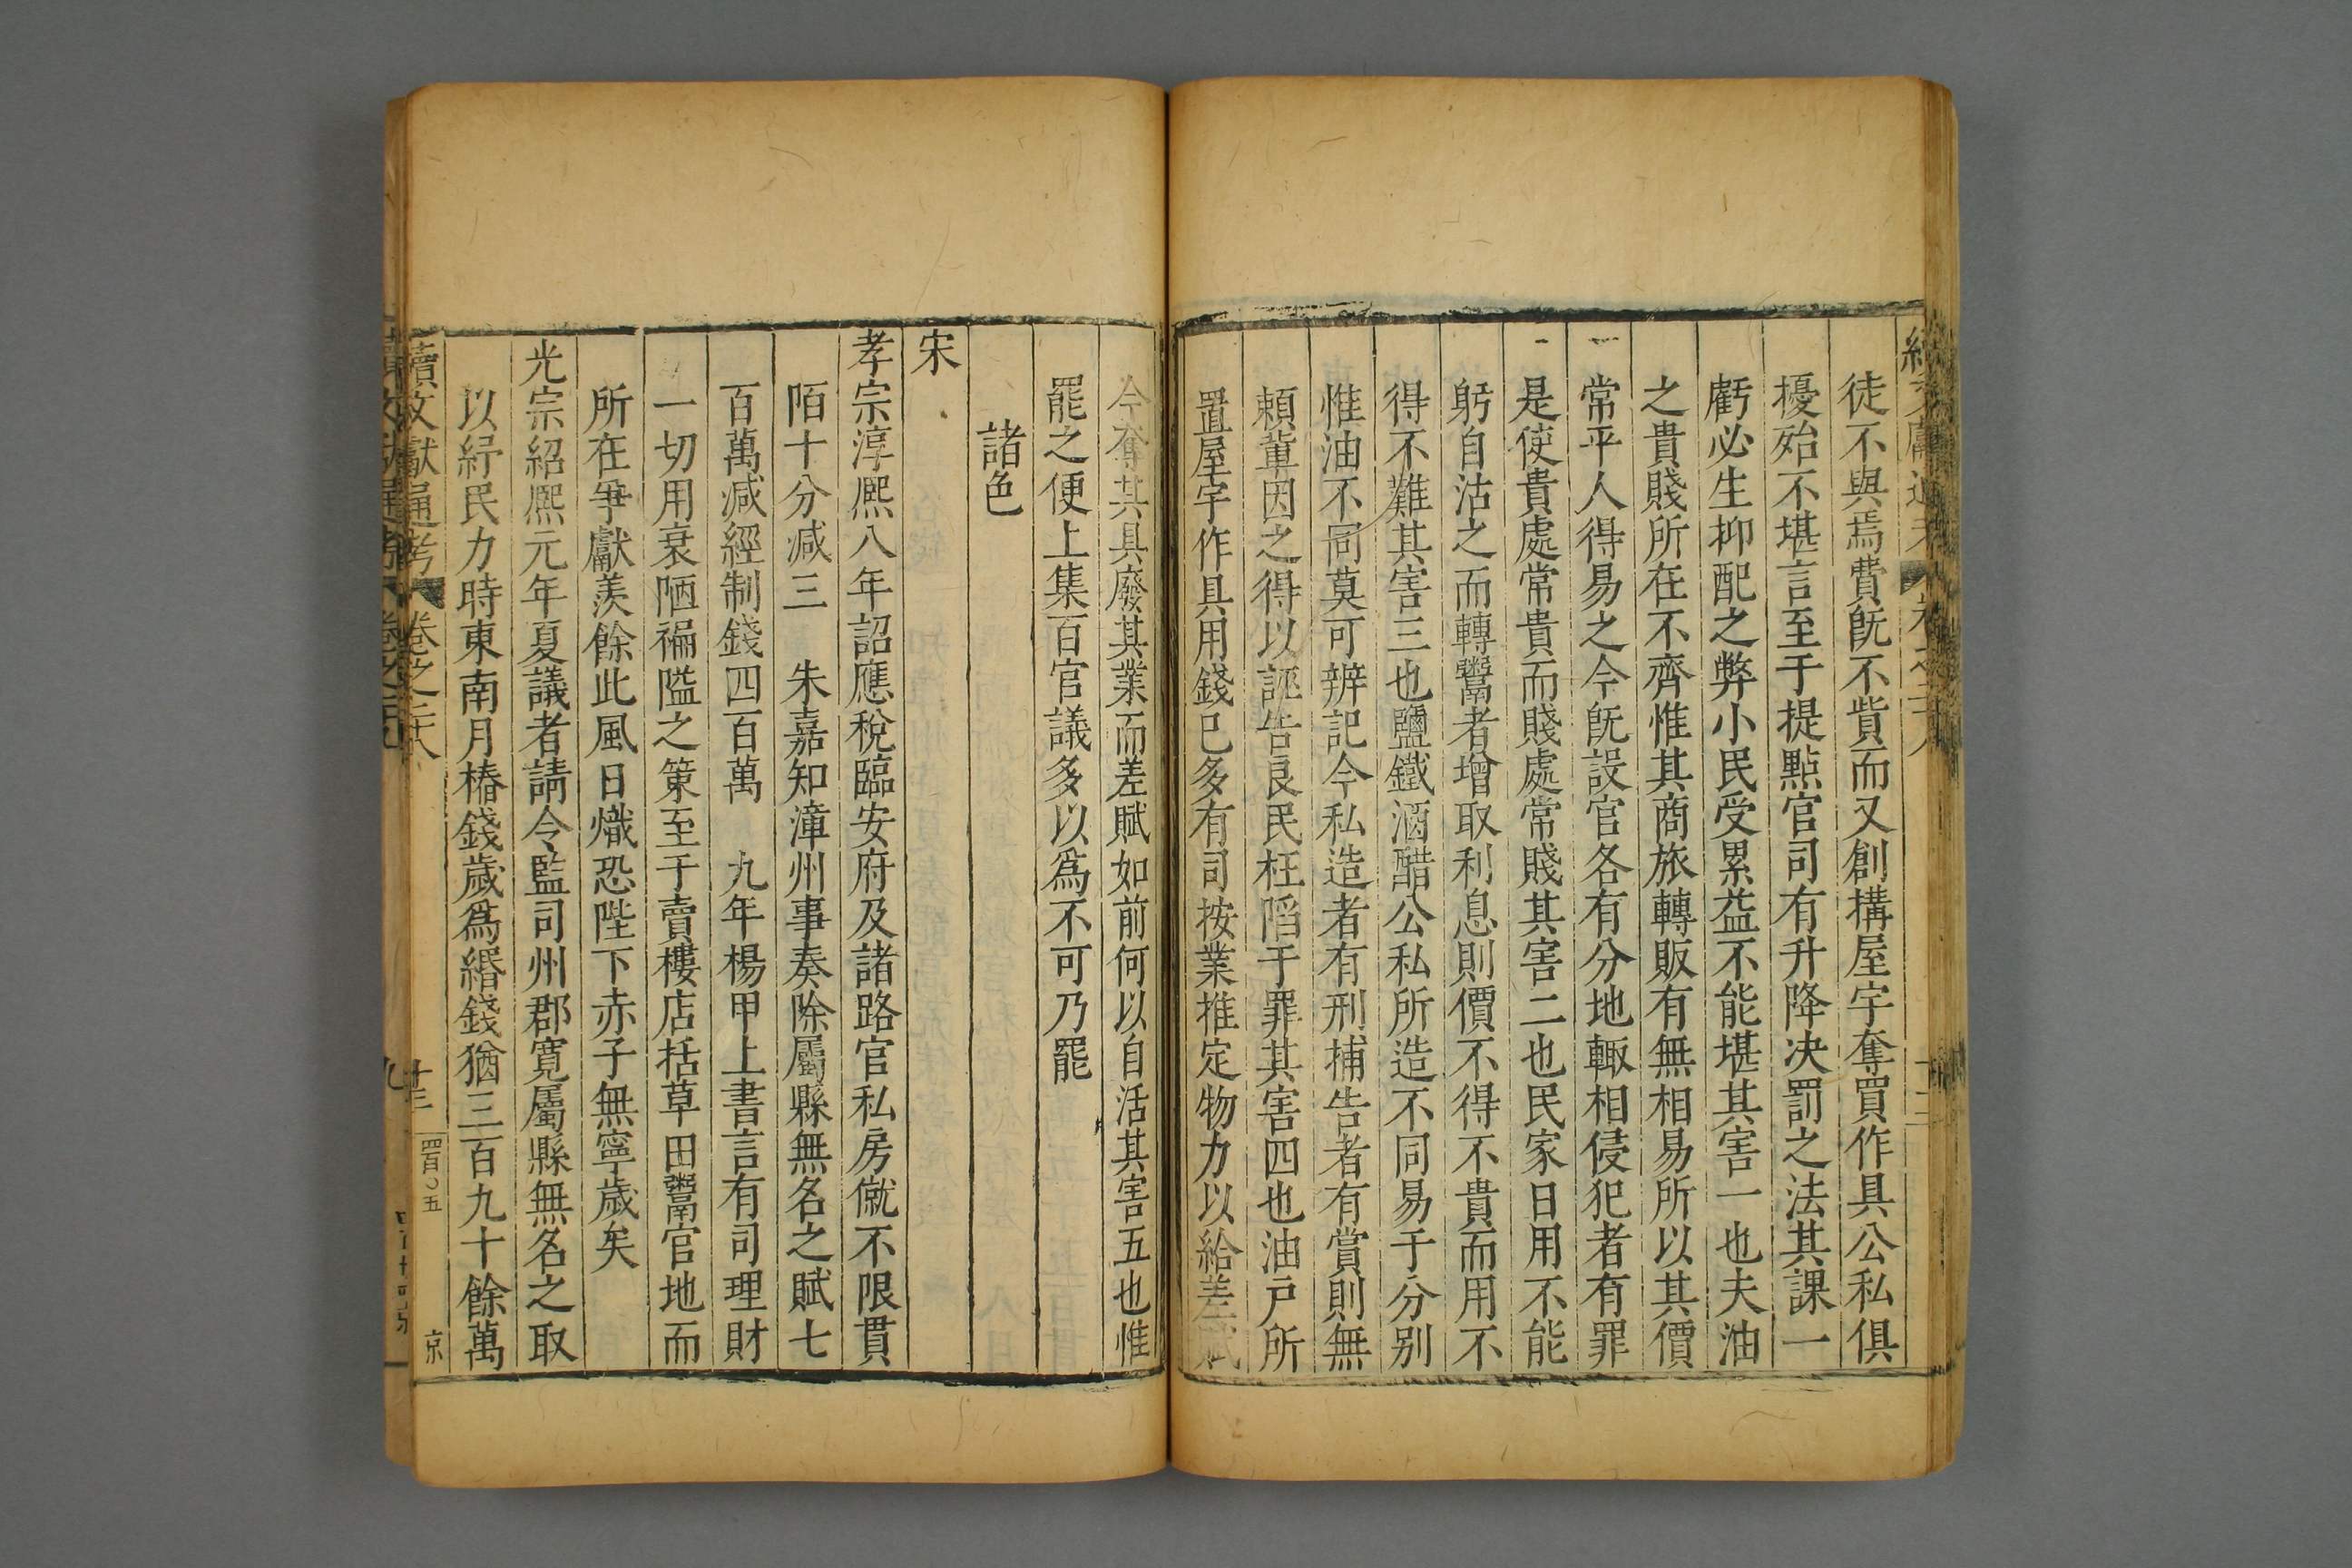 徒不與焉費旣不貲而又創構屋宇奪買作具公私俱
擾殆不堪言至于提點官司有升降决罰之法其課一
虧必生抑配之弊小民受累益不能堪其害一也夫油
之貴賤所在不齊惟其商旅轉販有無相易所以其價
常平人得易之今旣設官各有分地輙相侵犯者有罪
是使貴處常貴而賤處常賤其害二也民家日用不能
躬自沽之而轉鬻者增取利息則價不得不貴而用不
得不難其害三也鹽鐵酒醋公私所造不同易于分别
惟油不同莫可辨記今私造者有刑捕告者有賞則無
頼軰因之得以誣告良民枉陷于罪其害四也油戸所
置屋宇作具用錢已多有司按業推定物力以給差賦
今奪其具廢其業而差賦如前何以自活其害五也惟
罷之便上集百官議多以爲不可乃罷
諸色
宋
孝宗淳熈八年詔應稅臨安府及諸路官私房僦不限貫
陌十分减三 朱嘉知漳州事奏除屬縣無名之賦七
百萬减經制錢四百萬 九年楊甲上書言有司理財
一切用衰陋褊隘之策至于賣樓店括草田鬻官地而
所在爭獻羨餘此風日熾恐陛下赤子無寧歲矣
光宗紹熈元年夏議者請令監司州郡寛屬縣無名之取
以紓民力時東南月樁錢歲爲緡錢猶三百九十餘萬
續文獻通考 卷之二十八 十三 四百〇五 京